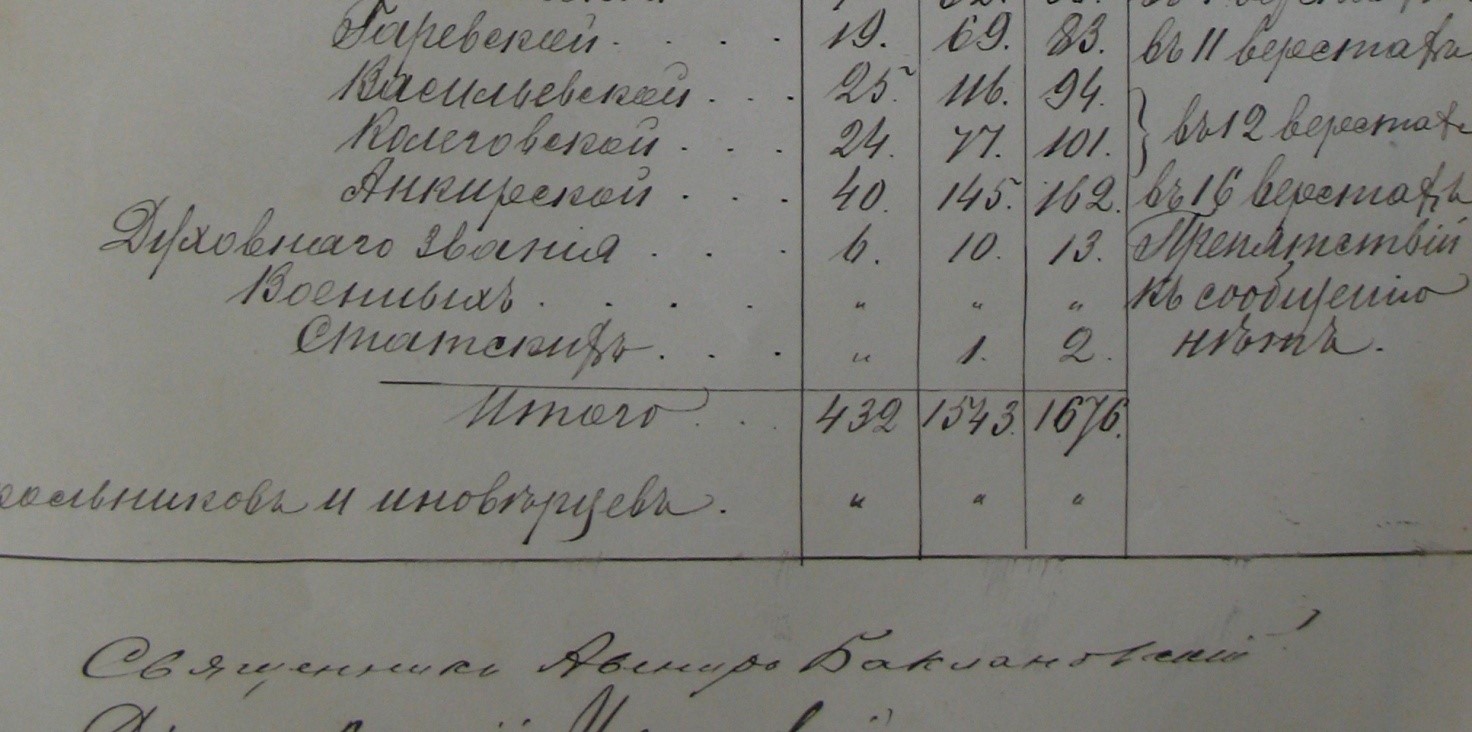 Гаревской . . . . 19. 69. 83. въ 11 верстахъ
Васильевской . . . 25. 116. 94.
Колеговской . . . 24. 77. 101. } въ 12 верстах
Анкирской . . . 40. 145. 162. въ 16 верстахъ
Духовнаго званія . . . 6. 10. 13. Препятствій
Военныхъ . . . . „ „ „ къ сообщенію
Статскихъ . . . „ 1. 2. нѣтъ.
Итого . . . 432 1543. 1676.
кольниковъ и иновѣрцевъ. „ „ „
Священникъ Авениръ Баклановскій